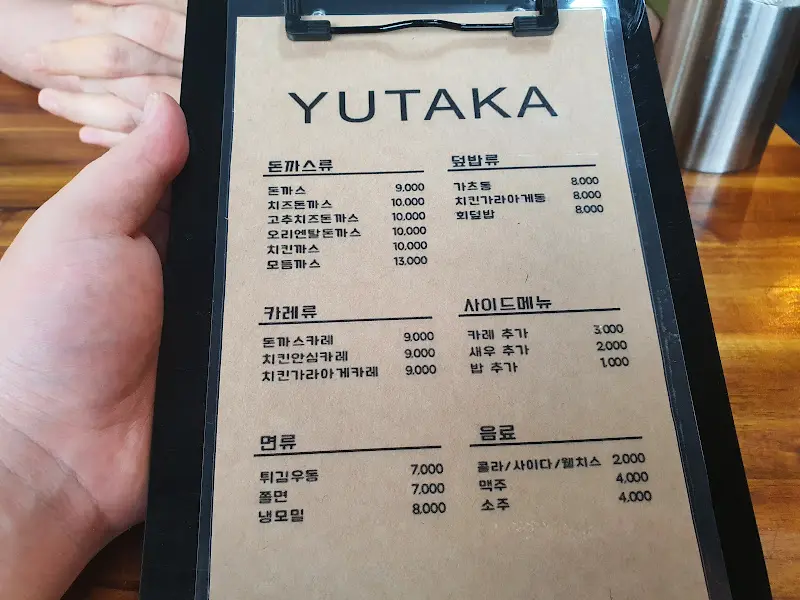 YUTAKA
돈까스류
돈까스 9,000
치즈돈까스 10,000
고추치즈돈까스 10,000
오리엔탈돈까스 10,000
치킨까스 10,000
모듬까스 13,000
덮밥류
가츠동 8,000
치킨가라아게동 8,000
회덮밥 8,000
카레류
돈까스카레 9,000
치킨안심카레 9,000
치킨가라아게카레 9,000
사이드메뉴
카레 추가 3,000
새우 추가 2,000
밥 추가 1,000
면류
튀김우동 7,000
쫄면 7,000
냉모밀 8,000
음료
콜라/사이다/웰치스 2,000
맥주 4,000
소주 4,000